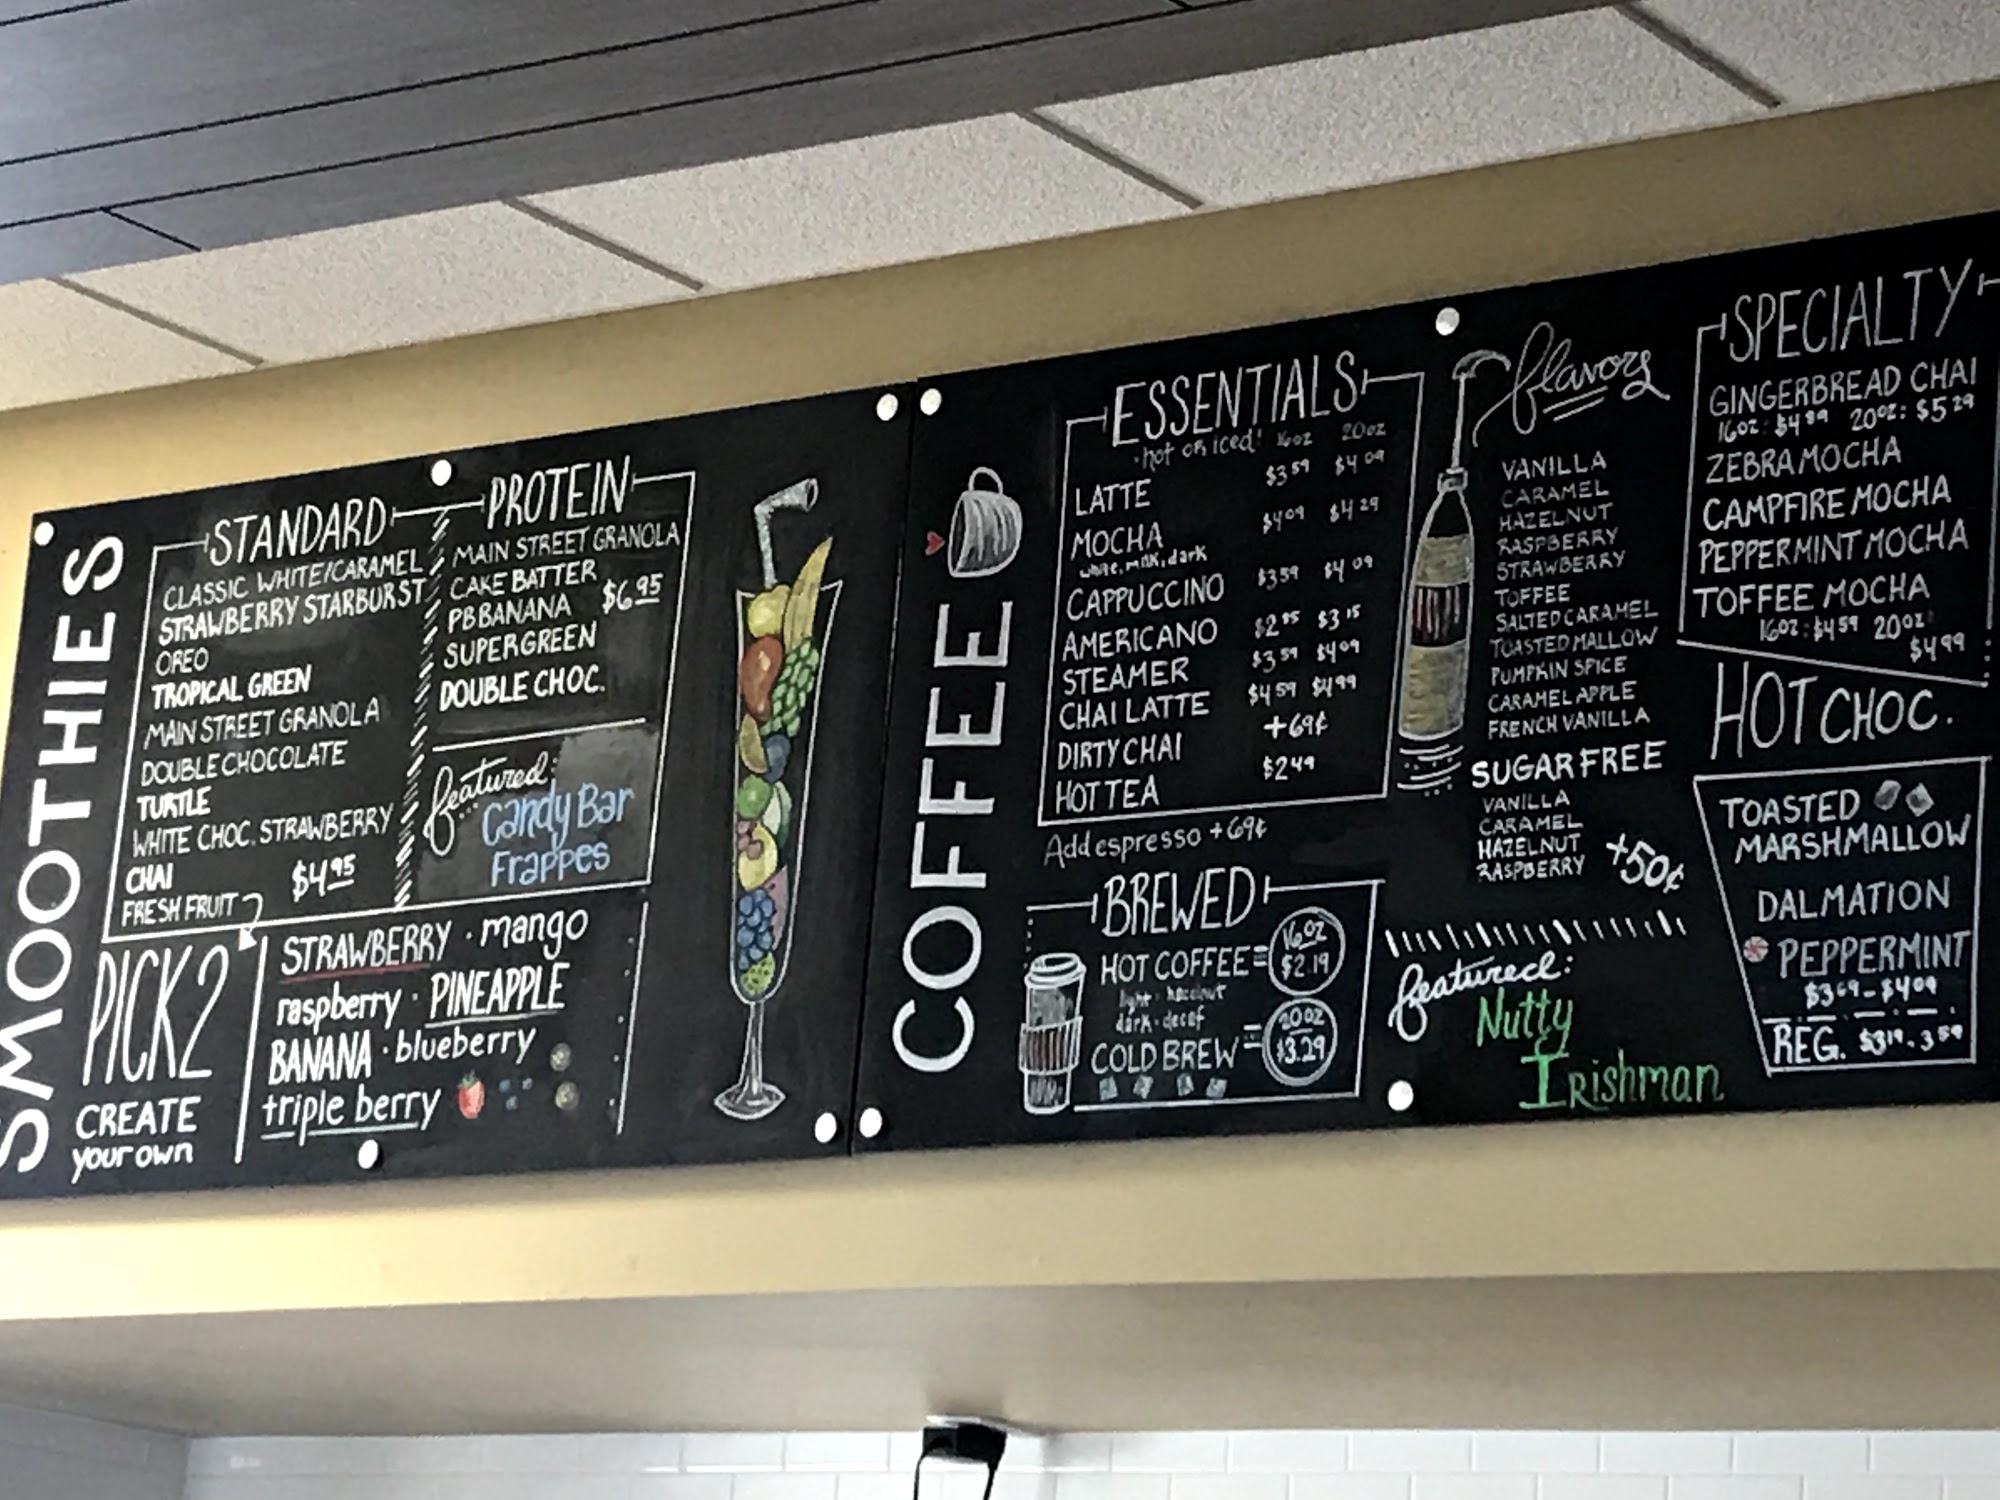 SMOOTHIES
STANDARD
CLASSIC WHITE/CARAMEL
STRAWBERRY STARBURST
OREO
TROPICAL GREEN
MAIN STREET GRANOLA
DOUBLE CHOCOLATE
TURTLE
WHITE CHOC. STRAWBERRY
CHAI
$4.95
FRESH FRUIT
PROTEIN
MAIN STREET GRANOLA
CAKE BATTER
PB BANANA $6.95
SUPERGREEN
DOUBLE CHOC.
featured:
Candy Bar
Frappes
PICK 2
CREATE
your own
STRAWBERRY · mango
raspberry · PINEAPPLE
BANANA · blueberry
triple berry
COFFEE
ESSENTIALS
·hot or iced! 16oz 20oz
LATTE $3.59 $4.09
MOCHA $4.09 $4.29
white, milk, dark
CAPPUCCINO $3.59 $4.09
AMERICANO $2.85 $3.15
STEAMER $3.59 $4.09
CHAI LATTE $4.59 $4.99
DIRTY CHAI +69¢
HOT TEA $2.49
Add espresso +69¢
BREWED
HOT COFFEE = 16oz $2.19
light · hazelnut
dark · decaf
COLD BREW = 20oz $3.29
flavors
VANILLA
CARAMEL
HAZELNUT
RASPBERRY
STRAWBERRY
TOFFEE
SALTED CARAMEL
TOASTED MALLOW
PUMPKIN SPICE
CARAMEL APPLE
FRENCH VANILLA
SUGAR FREE
VANILLA
CARAMEL
HAZELNUT
RASPBERRY
+50¢
featured:
Nutty
Irishman
SPECIALTY
GINGERBREAD CHAI
16oz: $4.89 20oz: $5.29
ZEBRA MOCHA
CAMPFIRE MOCHA
PEPPERMINT MOCHA
TOFFEE MOCHA
16oz: $4.59 20oz:
$4.99
HOT CHOC.
TOASTED
MARSHMALLOW
DALMATION
PEPPERMINT
$3.69 - $4.09
REG. $3.19 - 3.59